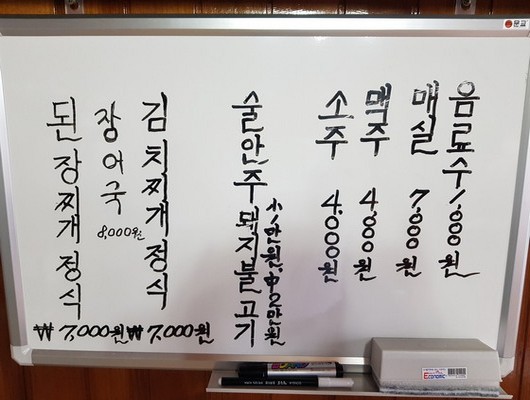 문교
된장찌개정식
₩7,000원
장어국
8,000원
김치찌개정식
₩7,000원
술안주돼지불고기
小1만원.中2만원
소주 4,000원
맥주 4,000원
매실 7,000원
음료수 1,000원
Economic